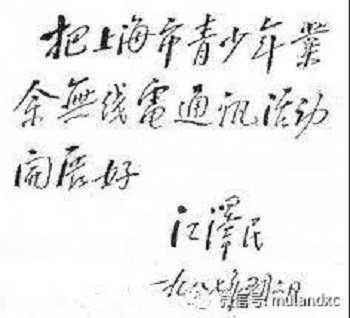 把上海市青少年業
余無线電通讯活动
開展好
江澤民
一九八七年五月二日
微信号: mulandxc